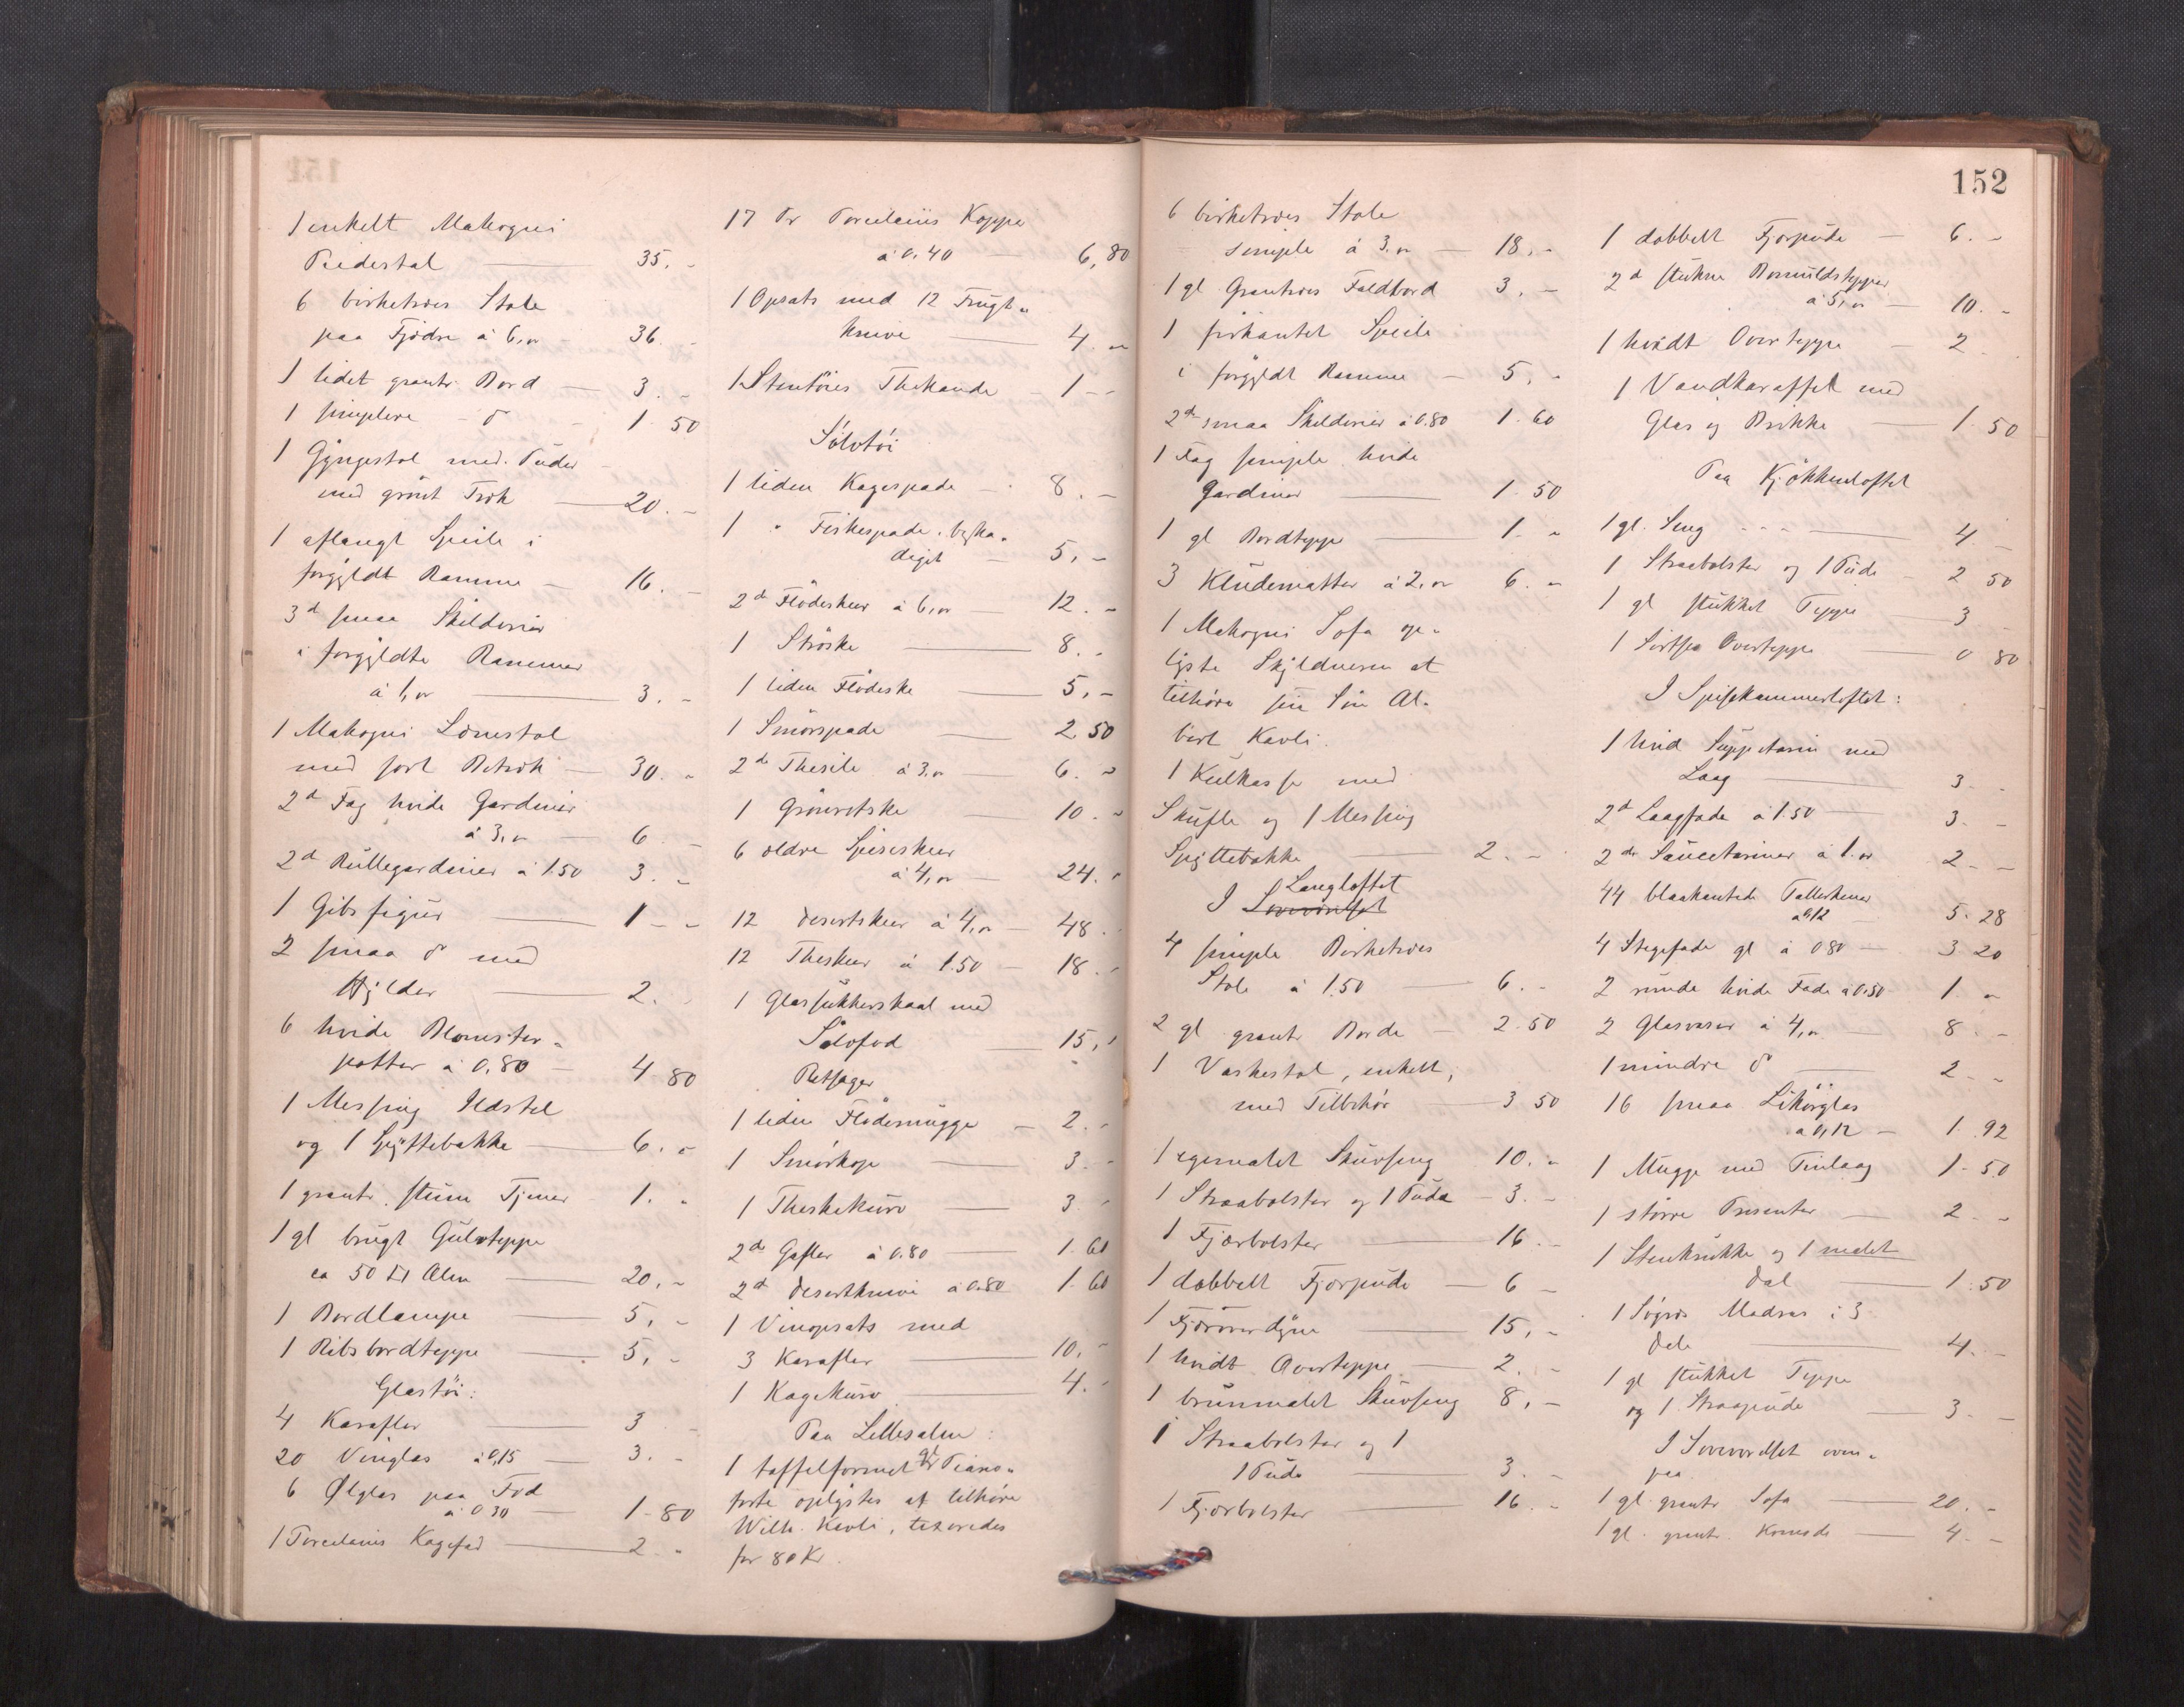 1 enkelt Mahogni
Piedestal — 35. -
6 birketræes Stole
paa Fjedre á 6,oo - 36. -
1 lidet grantr. Bord — 3. -
1 simplere - do - 1 50
1 Gyngestol med Puder
med grönt Træk — 20. -
1 aflangt Speile i
forgyldt Ramme — 16. -
3de smaa Skilderier
i forgyldte Rammer
á 1,oo — 3. -
1 Mahogni Lænestol
med sort Betræk — 30. -
2de Fag hvide Gardiner
á 3,oo — 6 -
2de Rullegardiner á 1.50 3. -
1 Gibsfigur — 1 - -
2 smaa do med
Hylder — 2. -
6 hvide Blomster-
potter á 0,80 — 4 80
1 Messing Ildstel
og 1 Spyttebakke — 6. -
1 grantr. stum Tjener 1. -
1 gl brugt Gulvteppe
ca 50 □ Alen — 20. -
1 Bordlampe — 5, -
1 Ribsbordteppe — 5, -
Glastöi:
4 Karafler — 3 -
20 Vinglas á 0,15 — 3. -
6 Ølglas paa Fod
á 0 30 — 1 - 80
1 Porcelains Kagefad — 2 -
17 Pr Porcelains Koppe
á 0,40 — 6,80
1 Opsats med 12 Frugt-
knive — 4. -
1 Stentöies Thekande - 1 - -
Sölvtöi
1 liden Kagespade - 8. -
1 " Fiskespade, beska-
diget — 5, -
2de Flödeskeer á 6,oo — 12. -
1 Ströske — 8. -
1 liden Flödeske — 5, -
1 Smörspade — 2 50
2de Thesile á 3,oo — 6. -
1 Grönretske — 10. -
6 ældre Spiseskeer
á 4,oo — 24. -
12 Desertskeer á 4,oo — 48. -
12 Theskeer á 1.50 — 18. -
1 Glassukkerskaal med
Sölvfod — 15, -
Pletsager
1 liden Flödemugge — 2. -
1 Smörkop — 3. -
1 Theskekurv — 3 -
2de Gafler á 0.80 — 1. 60
2de Desertknive á 0.80 1. 60
1 Vinopsats med
3 Karafler — 10. -
1 Kagekurv — 4. -
Paa Lillesalen:
1 taffelformet gl Piano-
forte oplystes at tilhöre
Wilh. Kavli, taxeredes
for 80 Kr.
152
6 birketræes Stole
simple á 3.oo — 18. -
1 gl. Grantræes Foldbord 3, -
1 firkantet Speile
i forgyldt Ramme — 5, -
2de smaa Skilderier á 0.80 1. 60
1 Fag simple hvide
Gardiner — 1. 50
1 gl Bordteppe — 1. -
3 Kludematter á 2,oo 6. -
1 Mahogni Sofa op-
lyste Skyldneren at
tilhöre sin Sön Al-
bert Kavli.
1 Kulkasse med
Skuffe og 1 Messing
Spyttebakke — 2. -
Langloftet
I Soveværelset
4 simple Birketræes
Stole á 1.50 — 6. -
2 gl grantr Borde — 2.50
1 Vaskestol, enkelt,
med Tilbehör — 3 50
1 egemalet Skuvseng 10. -
1 Straabolster og 1 Pude — 3. -
1 Fjærbolster — 16. -
1 dobbelt Fjærpude — 6 -
1 Fjæroverdyne — 15, -
1 hvidt Overteppe — 2. -
1 brunmalet Skuvseng 8, -
1 Straabolster og 1
1 Pude — 3. -
1 Fjærbolster — 16. -
1 dobbelt Fjærpude — 6. -
2de stukne Bomuldstepper
á 5,oo — 10. -
1 hvidt Overteppe — 2 -
1 Vandkaraffel med
Glas og Brikke — 1. 50
Paa Kjökkenloftet
1 gl. Seng - - - — 4 -
1 Straabolster og 1 Pude 2 50
1 gl stukket Teppe — 3 -
1 Overteppe — 0 80
I Spiskammerloftet:
1 hvid Suppeterin med
Laag — 3. -
2de Laagfade á 1.50 — 3. -
2de Sauceteriner á 1.oo 2 -
44 blaakantede Tallerkener
á 0,12 5. 28
4 Stegefade gl á 0 80 — 3 20
2 runde hvide Fade á 0.50 1. -
2 Glasvaser á 4,oo — 8 -
1 mindre do — 2 -
16 smaa Likörglas
á 0,12 — 1. 92
1 Mugge med Tinlaag 1. 50
1 större Presenter — 2 -
1 Stenkrukke og 1 malet
Dal — 1. 50
1 Madras i 3
Dele — 4. -
1 gl stukket Teppe
og 1 Straapude — 3. -
I Soveværelset oven-
paa
1 gl. grantr Sofa — 20. -
1 gl. grantr. Komode — 4. -